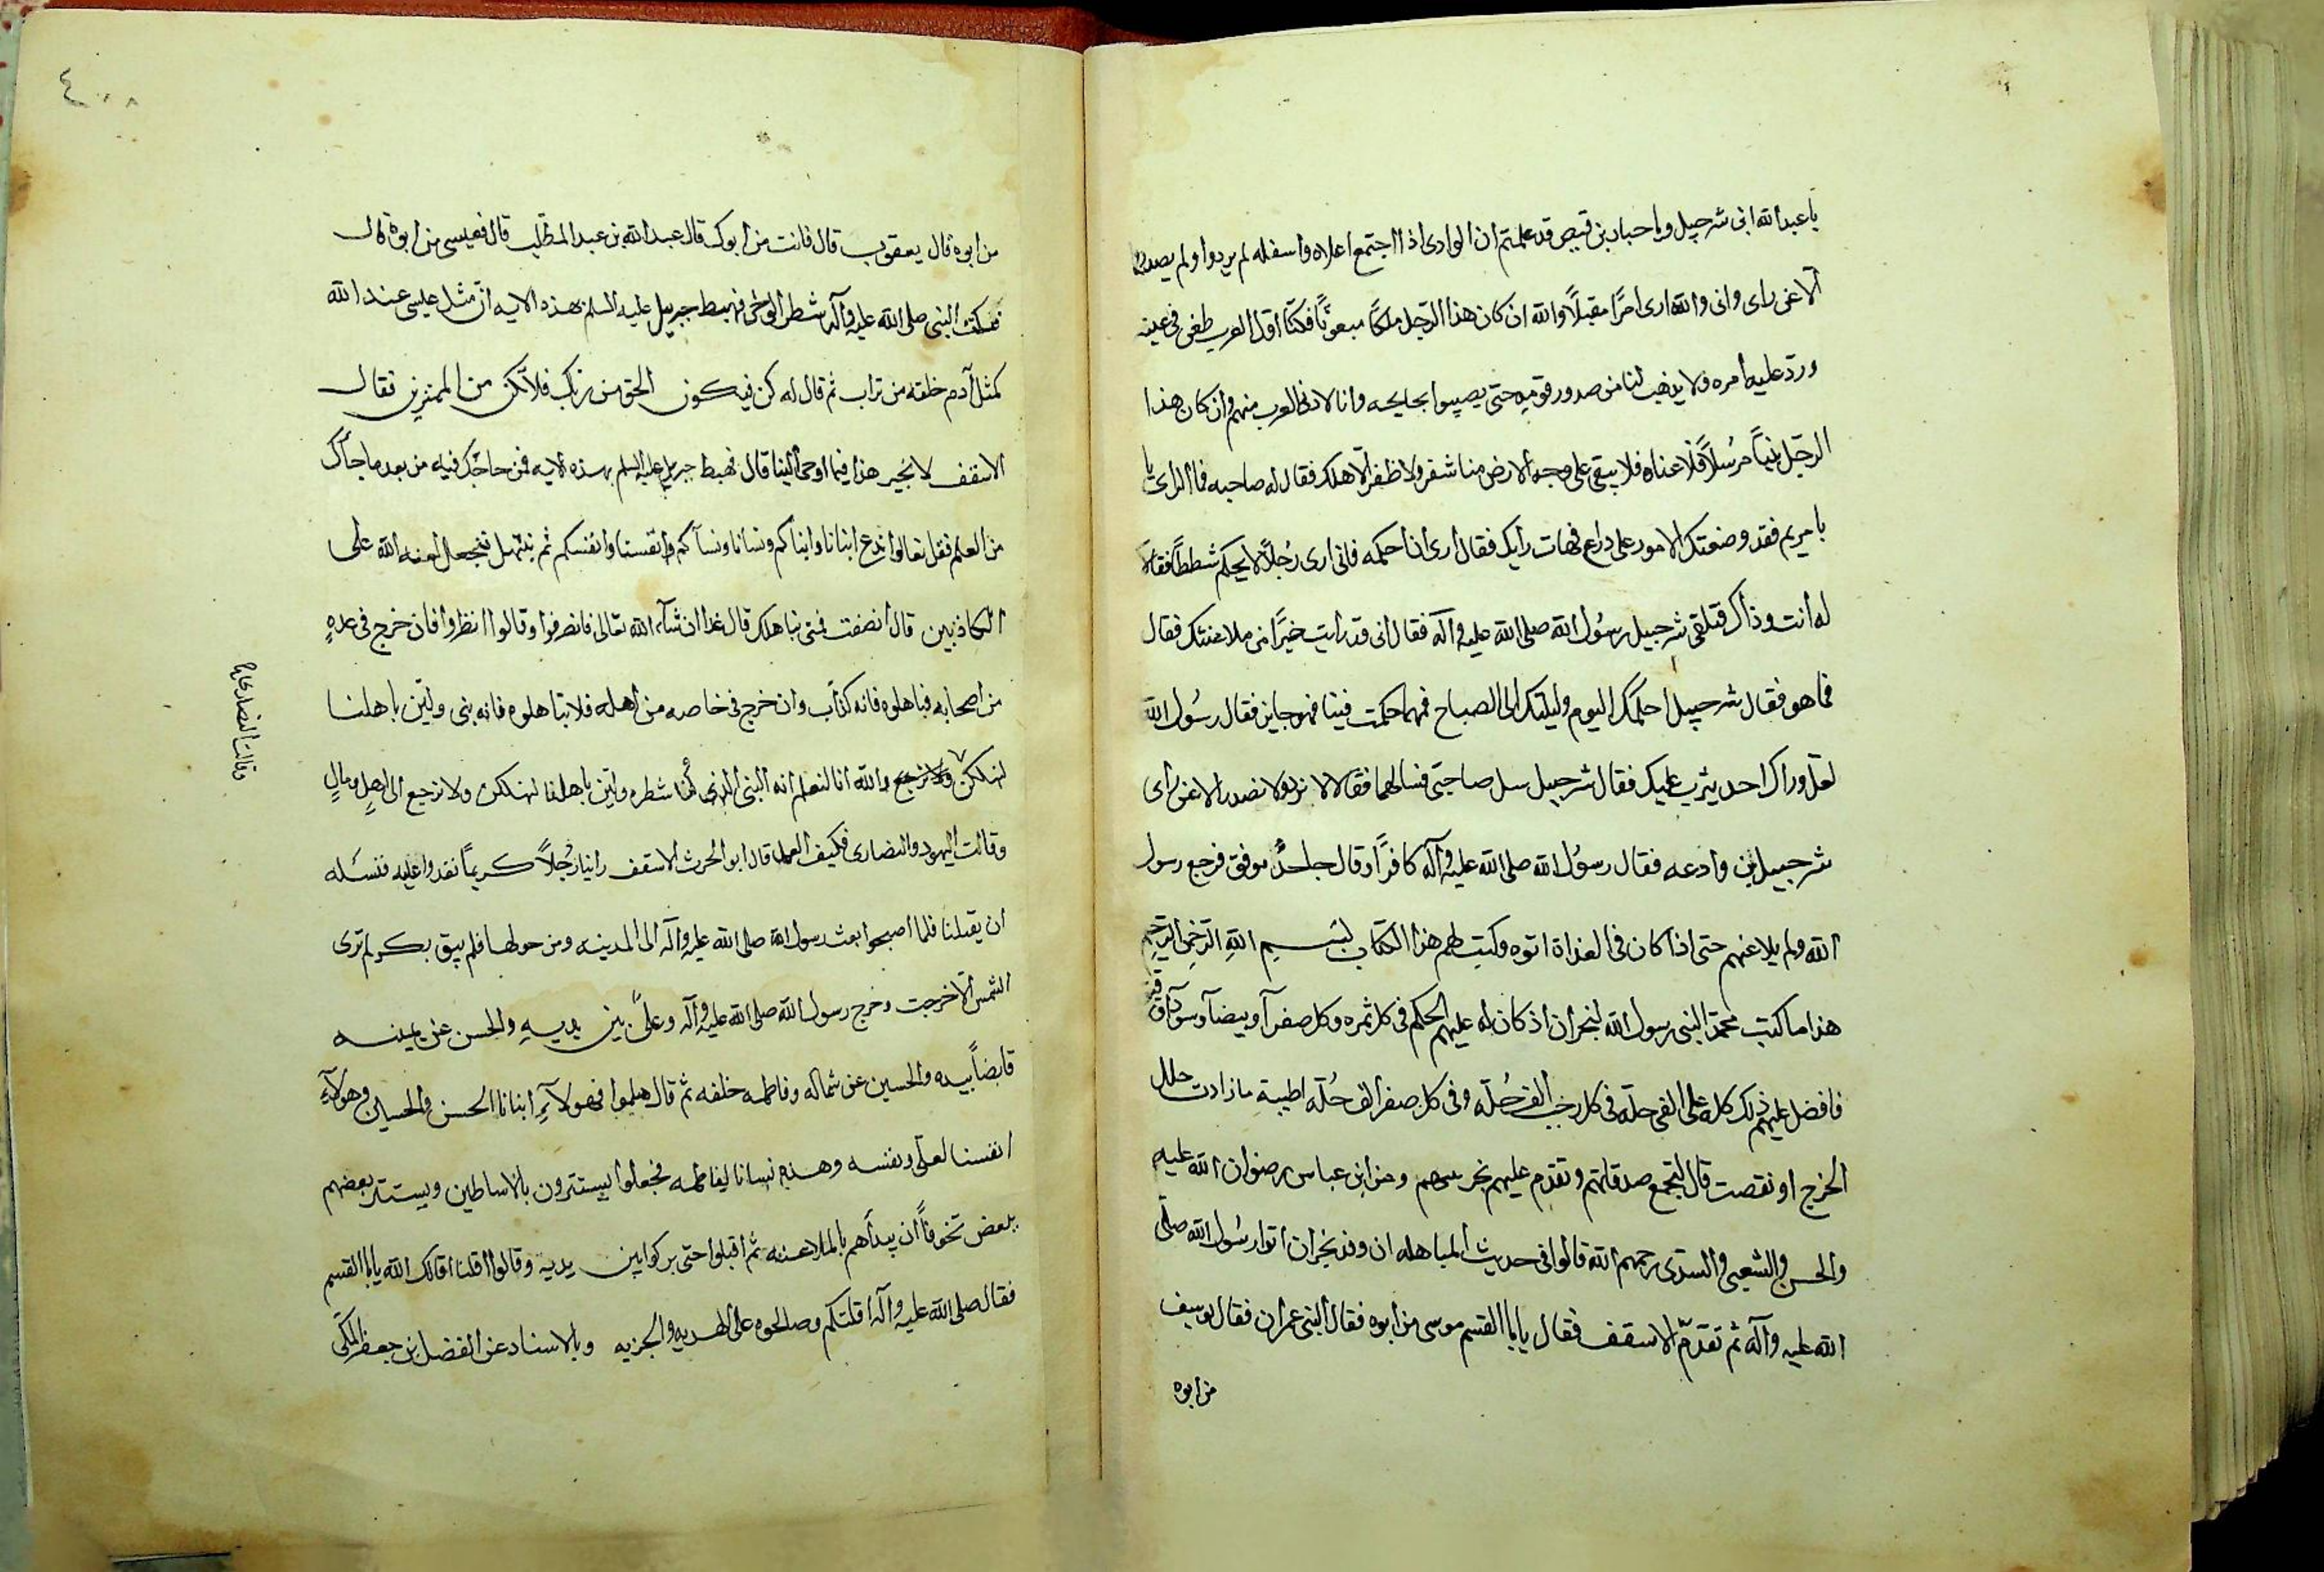 يا عبد الله ابن شرحبيل ويا حبار بن قيص قد علمتم ان الوادى اذا اجتمع اعلاه واسفله لم يردوا ولم يصدروا
الا عن راى وانى والله ارى امرًا مقبلًا والله ان كان هذا الرجل ملكًا مبعوثًا فكنّا اوّل العرب طغى فى عينه
وردّ عليه امره ولا يذهب لنا من صدور قومه حتى يصيبوا بجايحه وانا لادنى العرب منهم وان كان هذا
الرجل نبيًا مرسلًا فلاعناه فلا يبقى على وجه الارض منا شفر ولا ظفر الّا هلك فقال له صاحبه فما الراى يا
با مريم فقد وضعتك الامور على ذراع فهات رايك فقال ارى ان احكمه فانى ارى رجلًا لا يحكم شططًا فقالا
له انت وذاك فتلقى شرحبيل رسول الله صلى الله عليه وآله فقال انى قد رايت خيرًا من ملاعنتك فقال
فما هو فقال شرحبيل احكمك اليوم وليلتك الى الصباح فمهما حكمت فينا فهو جايز فقال رسول الله
لعل وراك احد يثرب عليك فقال شرحبيل سل صاحبى فسالهما فقالا لا نرد ولا نصدر الا عن راى
شرحبيل بن وادعه فقال رسول الله صلى الله عليه وآله كافرًا وقال جاحدٌ موفق فرجع رسول
الله ولم يلاعنهم حتى اذا كان فى الغداة اتوه وكتب لهم هذا الكتاب بسم الله الرحمن الرحيم
هذا ما كتب محمد النبى رسول الله لنجران اذ كان له عليهم الحكم فى كل ثمره وكل صفرآ وبيضآ وسودآ ورقيق
فافضل عليهم ذلك كله على الفى حلّة فى كل رجب الف حُلّة وفى كل صفر الف حُلّة اطيبة ما زادت حلل
الخرج او نقصت قال لتجمع صدقاتهم وتقدم عليهم وعن ابن عباس رضوان الله عليه
والحسن والشعبى والسدى رحمهم الله قالوا فى حديث المباهله ان وفد نجران اتوا رسول الله صلى
الله عليه وآله ثم تقدّم الاسقف فقال يا با القسم موسى من ابوه فقال النبى عمران فقال يوسف
من ابوه
٤٠٨
من ابوه قال يعقوب قال فانت من ابوك قال عبد الله بن عبد المطّلب قال فعيسى من ابوه قال
فسكت النبى صلى الله عليه وآله شطر الوحى فهبط جبريل عليه السلم بهذه الايه انّ مثل عيسى عند الله
كمثل آدم خلقه من تراب ثم قال له كن فيكون الحق من ربك فلا تكن من الممترين فقال
الاسقف لا نجير هذا فيما اوحى الينا قال فهبط جبريل عليه السلم بهذه الايه فمن حاجّك فيه من بعد ما جآك
من العلم فقل تعالوا ندع ابنانا وابناكم ونسانا ونسآكم وانفسنا وانفسكم ثم نبتهل فنجعل لعنه الله على
الكاذبين قال انصفت فمتى نباهلك قال غدا ان شآء الله تعالى فانصرفوا وقالوا انظروا فان خرج فى عدهٍ
من اصحابه فباهلوه فانه كذّاب وان خرج فى خاصه من اهله فلا تباهلوه فانه نبى ولئن باهلنا
لنهلكن ولا نرجع والله انا لنعلم انه النبى الذى كُنّا شطره ولئن باهلنا لنهلكن ولا نرجع الى اهلٍ ومالٍ
وقالت اليهود والنصارى فكيف العمل قال ابو الحرث الاسقف راينا رُجلًا كريمًا نغدوا عليه فنسئله
ان يقيلنا فلما اصبحوا بعث رسول الله صلى الله عليه وآله الى المدينه ومن حولها فلم يبق بكر لم ترى
الشمس الّا خرجت وخرج رسول الله صلى الله عليه وآله وعلىّ بين يديه والحسن عن يمينه
قابضًا بيده والحسين عن شماله وفاطمه خلفه ثم قال هلموا فهولآءِ ابنانا الحسن والحسين وهولآءِ
انفسنا لعلى ونفسه وهذه نسانا لفاطمه فجعلوا يستترون بالاساطين ويستتر بعضهم
ببعض تخوفًا ان يبدأهم بالملاعنه ثم اقبلوا حتى بركوا بين يديه وقالوا اقلنا اقالك الله يا با القسم
فقال صلى الله عليه وآله اقلتكم وصالحوه على الهديه والجزيه وبالاسناد عن الفضل بن جعفر المكّى
وقالت النصارى